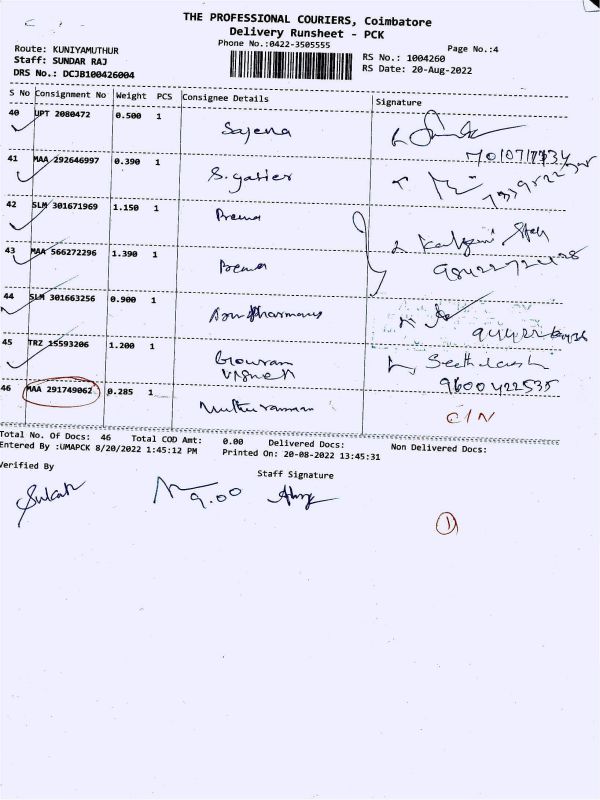 THE PROFESSIONAL COURIERS, Coimbatore
Delivery Runsheet - PCK
Phone No.:0422-3505555
Page No.:4
Route: KUNIYAMUTHUR
Staff: SUNDAR RAJ
DRS No.: DCJB100426004
RS No.: 1004260
RS Date: 20-Aug-2022
S No Consignment No Weight PCS Consignee Details Signature
40 UPT 2080472 0.500 1 Sajena
41 MAA 292646997 0.390 1 S.
42 SLM 301671969 1.150 1 Prema
43 MAA 566272296 1.390 1 Prema
44 SLM 301663256 0.900 1
45 TRZ 15593206 1.200 1 Gowram
9600422535
46 MAA 291749062 0.285 1 C/N
Total No. Of Docs: 46 Total COD Amt: 0.00 Delivered Docs: Non Delivered Docs:
Entered By :UMAPCK 8/20/2022 1:45:12 PM Printed On: 20-08-2022 13:45:31
Verified By Staff Signature
9.00
1